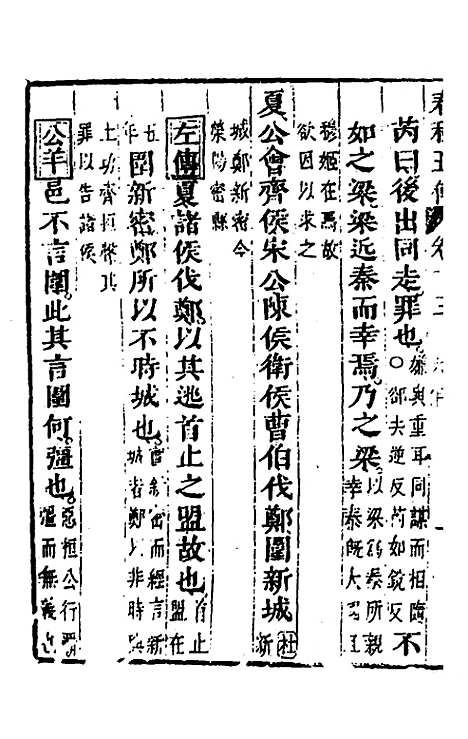 春秋五傳 卷十三
芮曰後出同走罪也嫌與重耳同謀而相隨○郤去逆反芮如銳反不
如之梁梁近秦而幸焉乃之梁以梁爲秦所親幸秦既大國且
穆姬在焉故欲因以求之
夏公會齊侯宋公陳侯衛侯曹伯伐鄭圍新城杜新
城鄭新密今滎陽密縣
左傳夏諸侯伐鄭以其逃首止之盟故也首止盟在
五年圍新密鄭所以不時城也實新密而經言新城者鄭以非時興
土功齊桓聲其罪以告諸侯
公羊邑不言圍此其言圍何彊也惡桓公行霸彊而無義也